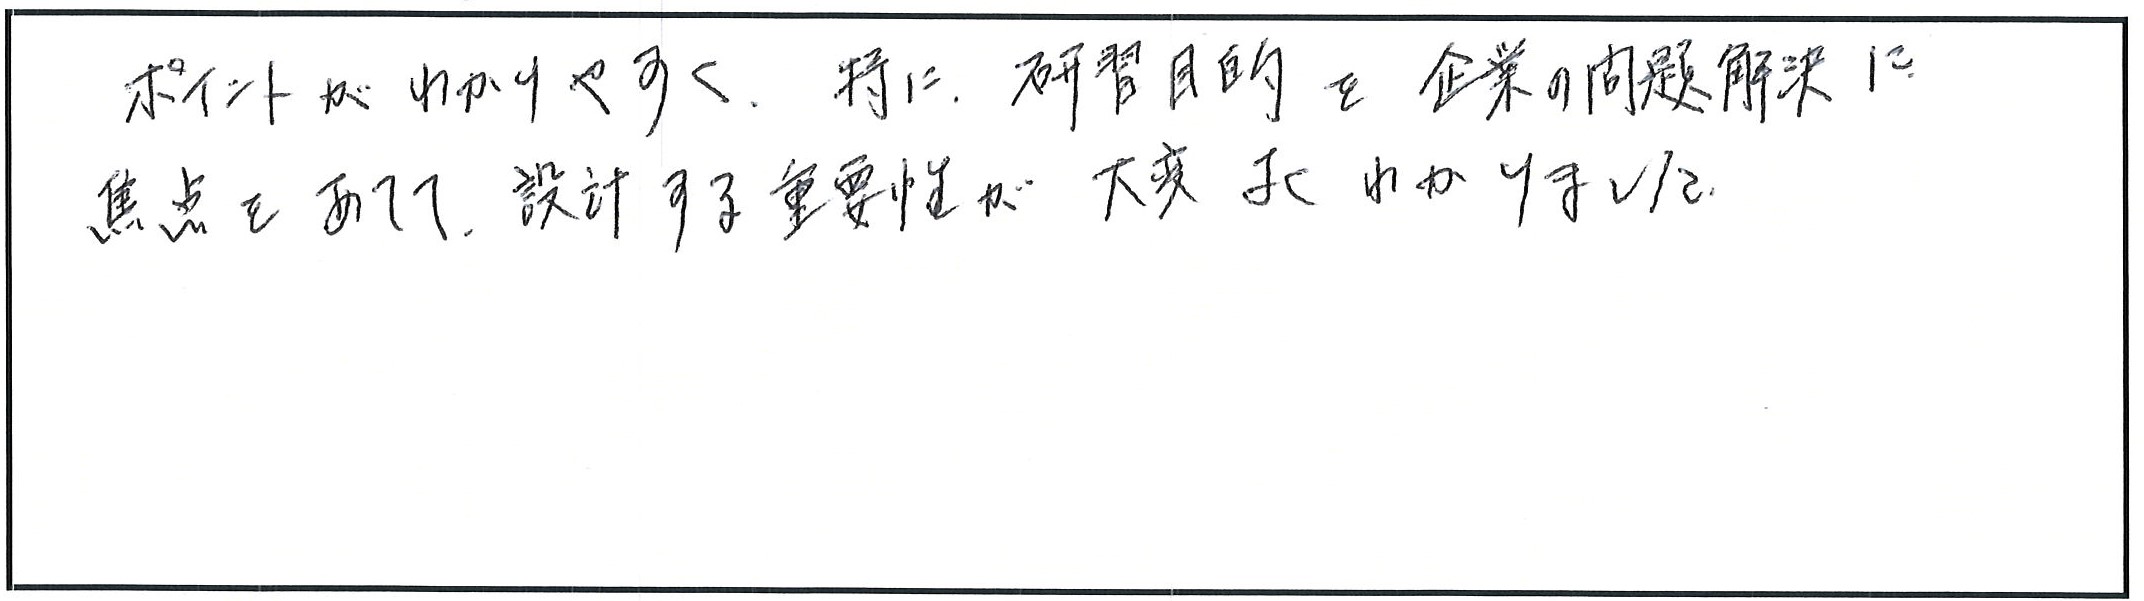 ポイントがわかりやすく、特に、研習目的を企業の問題解決に
焦点をあてて、設計する重要性が大変よくわかりました。